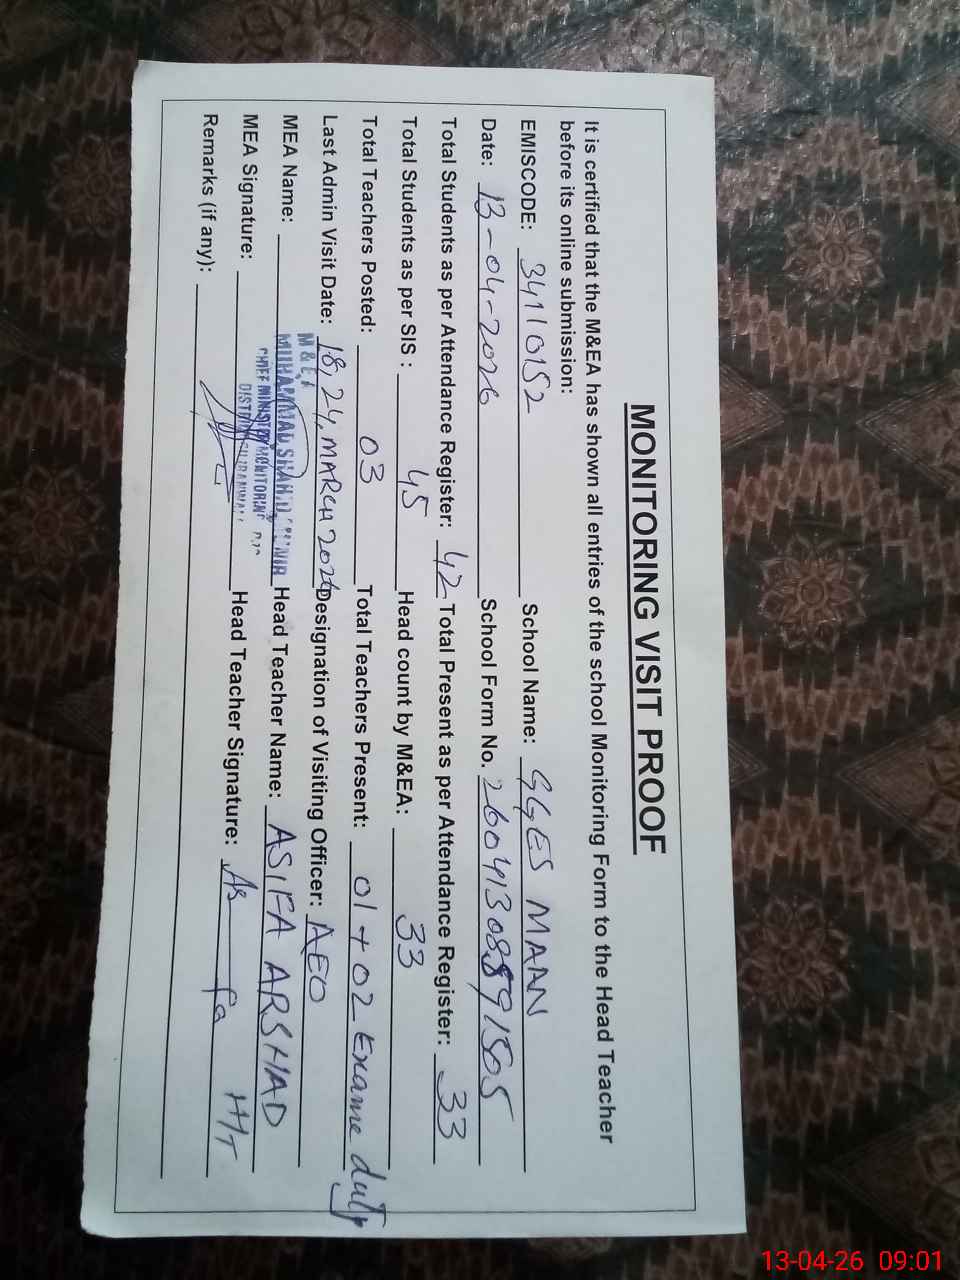 MONITORING VISIT PROOF
It is certified that the M&EA has shown all entries of the school Monitoring Form to the Head Teacher
before its online submission:
EMISCODE: 34110152 School Name: GGES MAN
Date: 13-04-2026 School Form No. 260041308891505
Total Students as per Attendance Register: 42 Total Present as per Attendance Register: 33
Total Students as per SIS : 45 Head count by M&EA: 33
Total Teachers Posted: 03 Total Teachers Present: 01 + 02 Exame duty
Last Admin Visit Date: 18,24, MARCH 2026 Designation of Visiting Officer: AEO
M & EA
MEA Name: MUHAMMAD Head Teacher Name: ASIFA ARSHAD
CHIEF MINISTER MONITORING
MEA Signature: Head Teacher Signature: H/T
Remarks (if any):
13-04-26 09:01